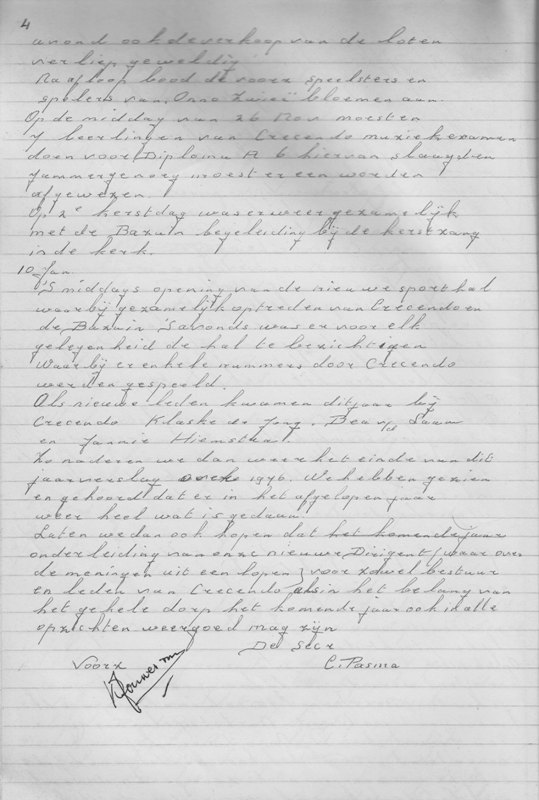 4
avond ook de verkoop van de loten
verliep geweldig
Na afloop bood de voorz speelsters en
spelers van Onno Zwier bloemen aan.
Op de middag van 26 Nov moesten
7 leerlingen van Crecendo muziekexamen
doen voor Diploma A 6 hiervan slaagden
jammergenoeg moest er een worden
afgewezen.
Op 2e kerstdag was er weer gezamelijk
met de Bazuin begeleiding bij de kerstzang
in de kerk.
10 Jan.
'S middags opening van de nieuwe sporthal
waarbij gezamelijk optreden van Crecendo en
de Bazuin Savonds was er voor elk
gelegenheid de hal te bezichtigen
waarbij er enkele nummers door Crecendo
werden gespeeld.
Als nieuwe leden kwamen dit jaar bij
Crecendo Klaske de Jong.
en Jannie Hiemstra.
Zo naderen we dan weer het einde van dit
jaarverslag over 1976. We hebben gezien
en gehoord dat er in het afgelopen jaar
weer heel wat is gedaan.
Laten we dan ook hopen dat het komende jaar
onder leiding van onze nieuwe Dirigent (waar over
de meningen uit een lopen) voor zowel bestuur
en leden van Crecendo als in het belang van
het gehele dorp het komende jaar ook in alle
opzichten weer goed mag zijn
De Secr
Voorz C. Pasma